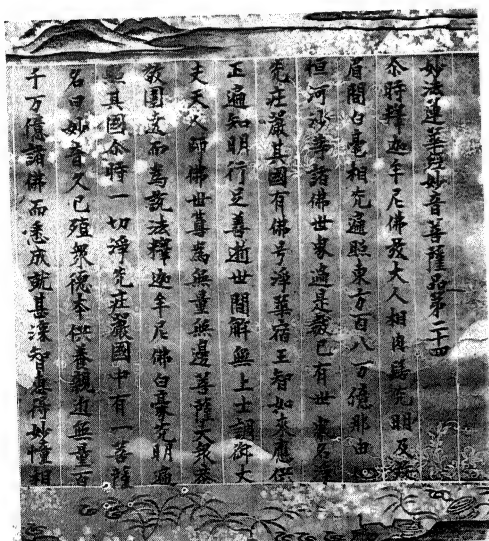 妙法蓮華經妙音菩薩品第二十四
尒時釋迦牟尼佛放大人相肉髻光明及放
眉間白毫相光遍照東方百八万億那由
恒河沙等諸佛世界過是數已有世界名淨
光莊嚴其國有佛号淨華宿王智如來應供
正遍知明行足善逝世間解無上士調御丈
夫天人師佛世尊為無量無邊菩薩大衆恭
敬圍遶而為說法釋迦牟尼佛白毫光明遍
照其國尒時一切淨光莊嚴國中有一菩薩
名曰妙音久已殖衆德本供養親近無量百
千万億諸佛而悉成就甚深智慧得妙憧相